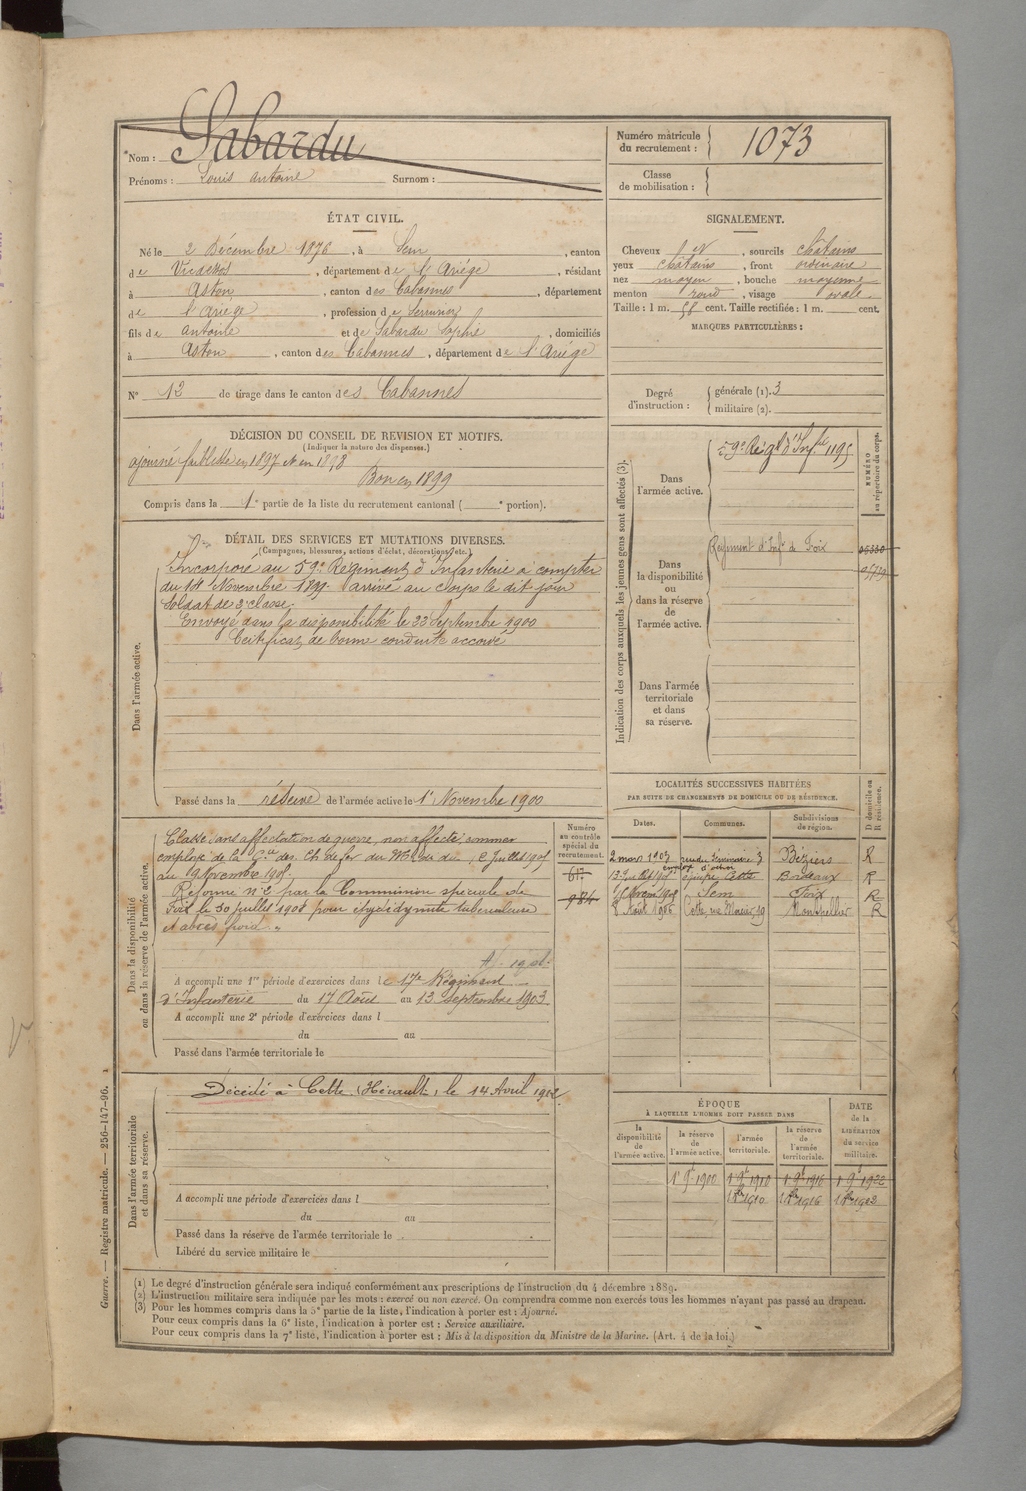 Nom : Sabardu
Prénoms : Louis Antoine Surnom :
Numéro matricule du recrutement : 1073
Classe de mobilisation :
ÉTAT CIVIL.
Né le 2 Décembre 1876, à Sem, canton
de Vicdessos, département de l'Ariége, résidant
à Aston, canton des Cabannes, département
de l'Ariége, profession de Serrurier
fils de Antoine et de Sabardu Sophie, domiciliés
à Aston, canton des Cabannes, département de l'Ariége
N° 12 de tirage dans le canton des Cabannes
SIGNALEMENT.
Cheveux et, sourcils châtains
yeux châtains, front ordinaire
nez moyen, bouche moyenne
menton rond, visage ovale
Taille : 1 m. 58 cent. Taille rectifiée : 1 m. cent.
MARQUES PARTICULIÈRES :
Degré d'instruction : générale (1). 3
militaire (2).
DÉCISION DU CONSEIL DE REVISION ET MOTIFS.
(Indiquer la nature des dispenses.)
ajourné faiblesse en 1897 et en 1898
Bon en 1899
Compris dans la 1e partie de la liste du recrutement cantonal ( e portion).
DÉTAIL DES SERVICES ET MUTATIONS DIVERSES.
(Campagnes, blessures, actions d'éclat, décorations, etc.)
Dans l'armée active.
Incorporé au 59e Régiment d'Infanterie à compter
du 14 Novembre 1899 arrivé au corps le dit jour
Soldat de 2e classe.
Envoyé dans la disponibilité le 22 Septembre 1900
Certificat de bonne conduite accordé
Passé dans la réserve de l'armée active le 1er Novembre 1900
Indication des corps auxquels les jeunes gens sont affectés (3).
NUMÉRO au répertoire du corps.
Dans l'armée active.
59e Régt d'Infie 1195
Dans la disponibilité ou dans la réserve de l'armée active.
Régiment d'Infie de Foix
Dans l'armée territoriale et dans sa réserve.
Dans la disponibilité ou dans la réserve de l'armée active.
Numéro au contrôle spécial du recrutement.
Classé sans affectation de guerre, non affecté comme
employé de la Cie des Ch de fer du Midi du 2 Juillet 1905
au 19 Novembre 1905.
Réformé n° 2 par la Commission spéciale de
Foix le 30 juillet 1908 pour épydidymite tuberculeuse
et abcès froid.
984
A accompli une 1re période d'exercices dans le 17e Régiment
d'Infanterie du 17 Août au 13 Septembre 1903
A accompli une 2e période d'exercices dans l
du au
Passé dans l'armée territoriale le
LOCALITÉS SUCCESSIVES HABITÉES
PAR SUITE DE CHANGEMENTS DE DOMICILE OU DE RÉSIDENCE.
D domicile ou R résidence.
Dates. Communes. Subdivisions de région.
2 mars 1903 rue du Séminaire 3 Béziers R
Bordeaux R
Sem Foix R
8 Août 1906 Cette, rue Mercier 19 Montpellier R
Dans l'armée territoriale et dans sa réserve.
Décédé à Cette (Hérault) le 14 Avril 1912
A accompli une période d'exercices dans l
du au
Passé dans la réserve de l'armée territoriale le
Libéré du service militaire le
ÉPOQUE
À LAQUELLE L'HOMME DOIT PASSER DANS
DATE de la LIBÉRATION du service militaire.
la disponibilité de l'armée active.
la réserve de l'armée active.
l'armée territoriale.
la réserve de l'armée territoriale.
1er 9bre 1900 1er 9bre 1910 1er 9bre 1916 1er 9bre 1922
(1) Le degré d'instruction générale sera indiqué conformément aux prescriptions de l'instruction du 4 décembre 1889.
(2) L'instruction militaire sera indiquée par les mots : exercé ou non exercé. On comprendra comme non exercés tous les hommes n'ayant pas passé au drapeau.
(3) Pour les hommes compris dans la 5e partie de la liste, l'indication à porter est : Ajourné.
Pour ceux compris dans la 6e liste, l'indication à porter est : Service auxiliaire.
Pour ceux compris dans la 7e liste, l'indication à porter est : Mis à la disposition du Ministre de la Marine. (Art. 4 de la loi.)
Guerre. — Registre matricule. — 256-147-96.